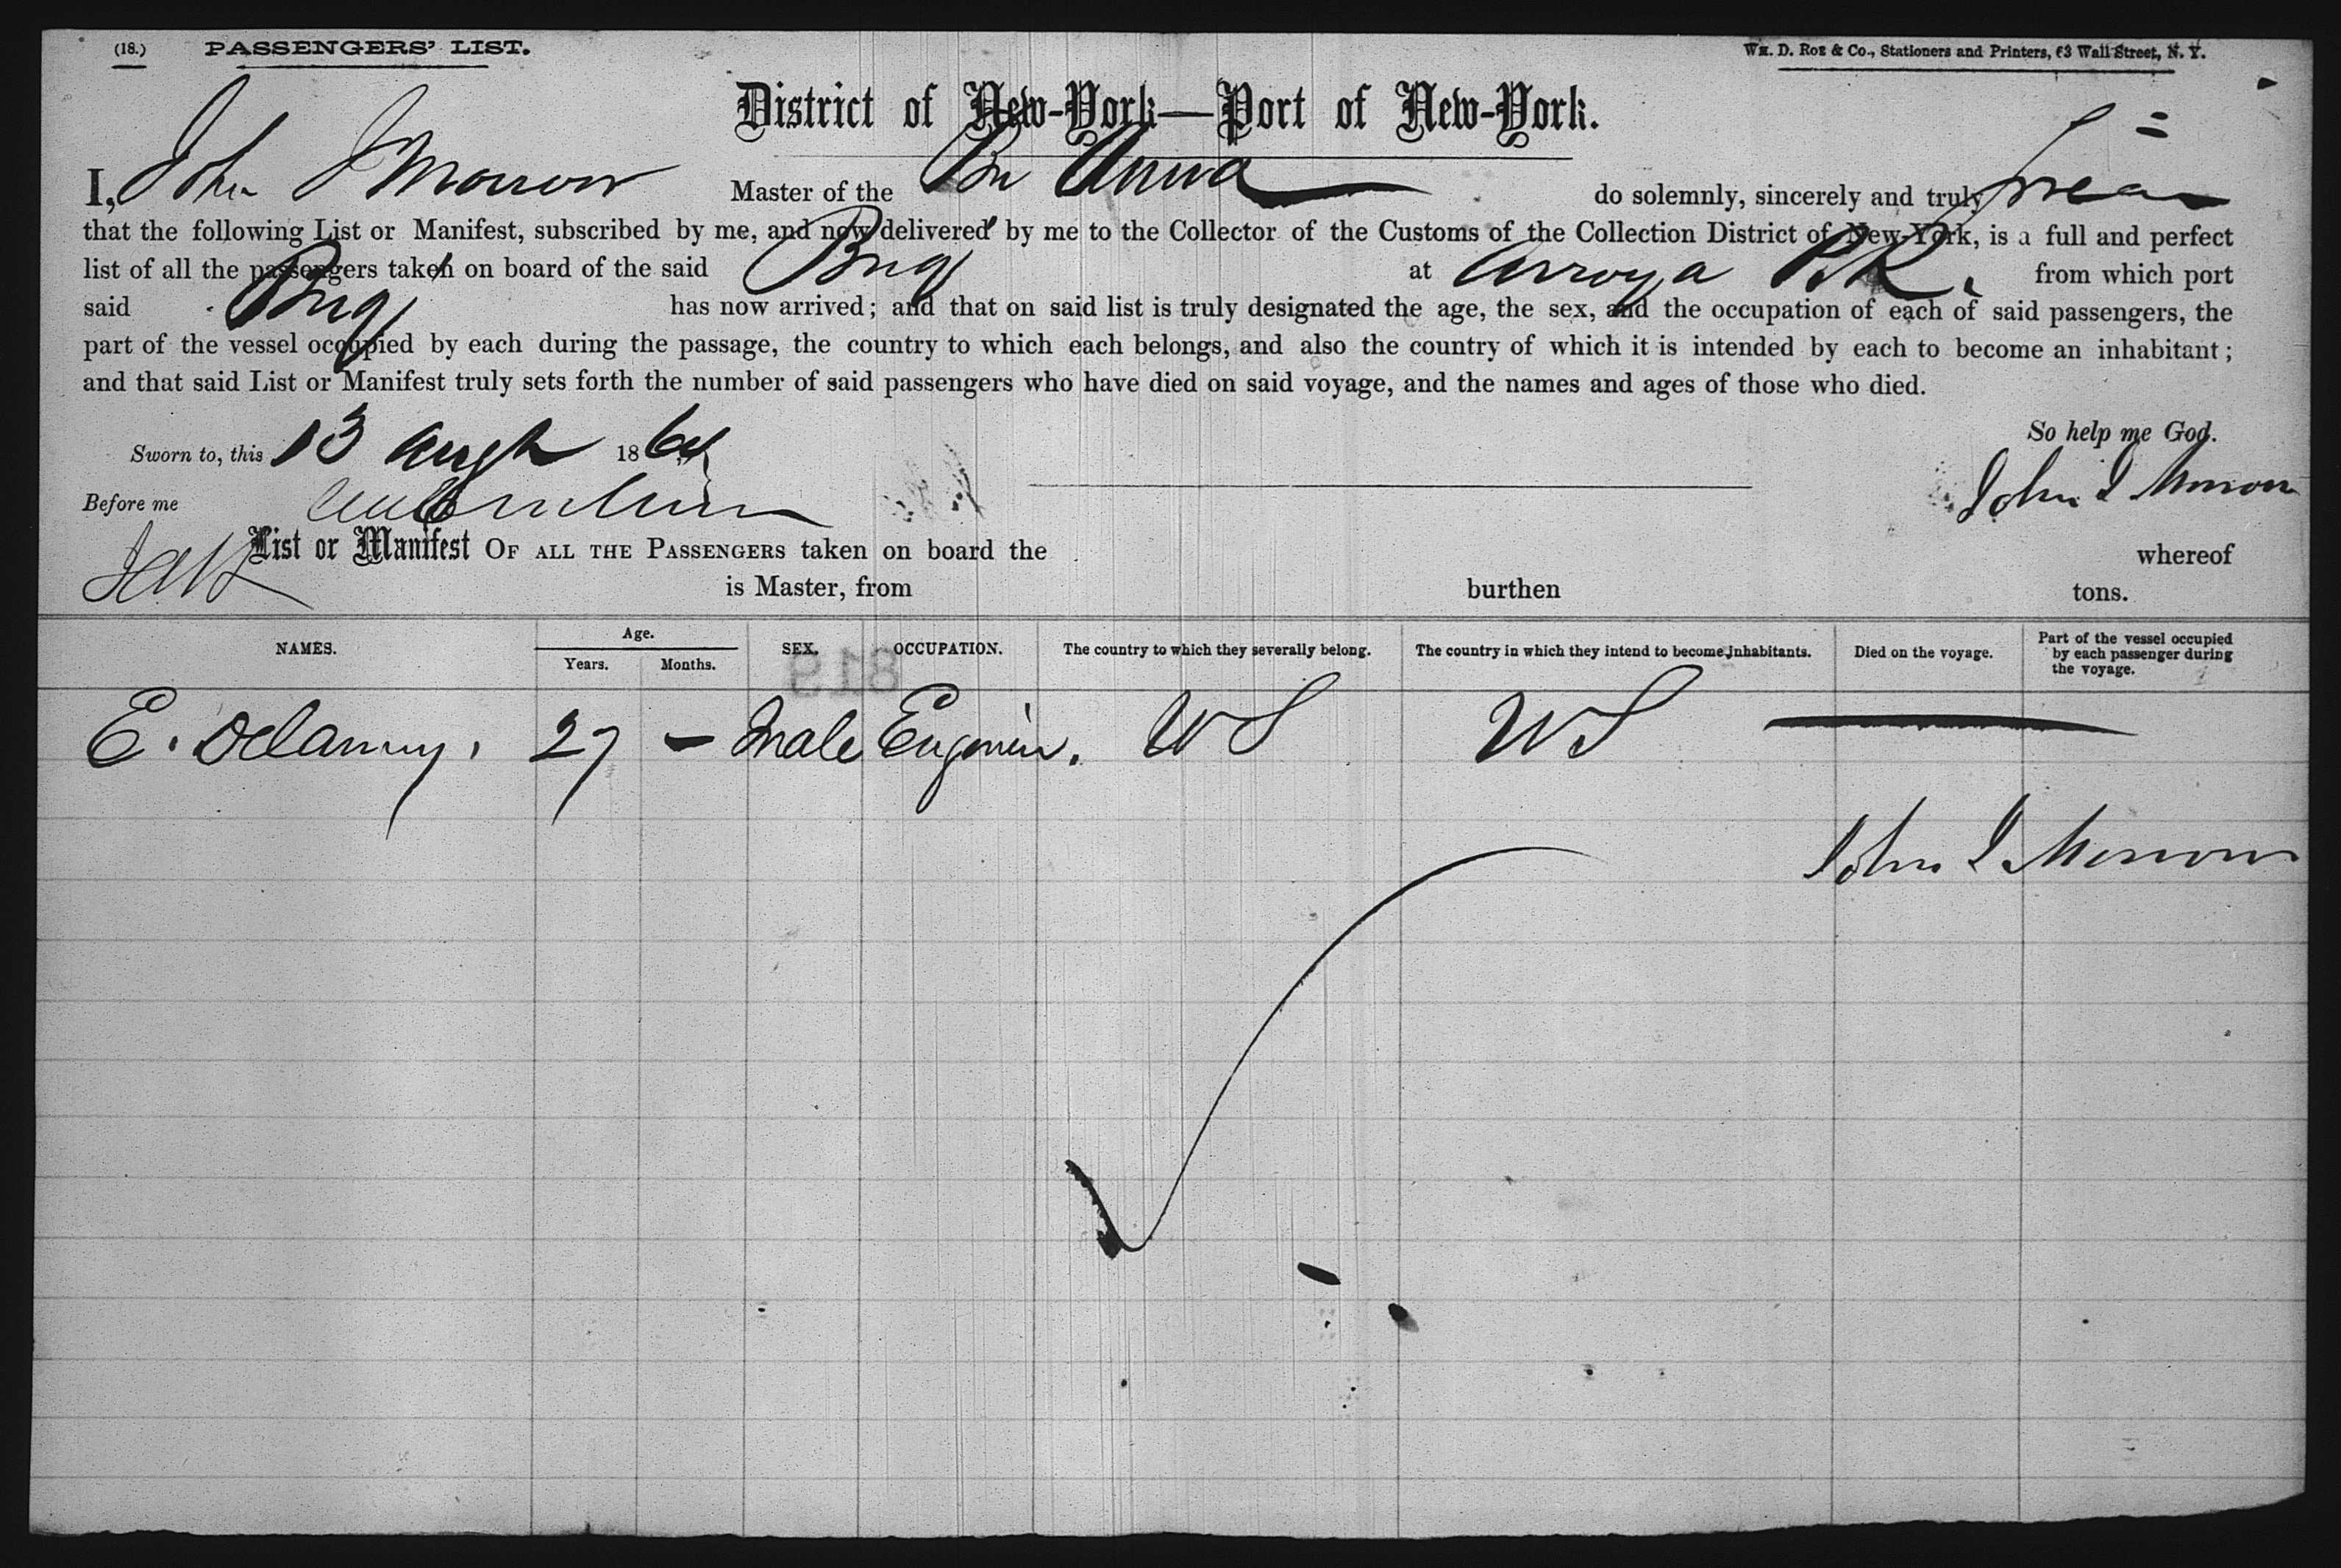 (18.) PASSENGERS' LIST. WM. D. ROE & CO., Stationers and Printers, 63 Wall Street, N. Y.
District of New-York—Port of New-York.
I, John J Morrow Master of the Br Anna do solemnly, sincerely and truly swear
that the following List or Manifest, subscribed by me, and now delivered by me to the Collector of the Customs of the Collection District of New-York, is a full and perfect
list of all the passengers taken on board of the said Brig at Arroya P.R. from which port
said Brig has now arrived; and that on said list is truly designated the age, the sex, and the occupation of each of said passengers, the
part of the vessel occupied by each during the passage, the country to which each belongs, and also the country of which it is intended by each to become an inhabitant;
and that said List or Manifest truly sets forth the number of said passengers who have died on said voyage, and the names and ages of those who died.
So help me God.
Sworn to, this 13 Augt 186
John J Morrow
Before me
List or Manifest OF ALL THE PASSENGERS taken on board the whereof
is Master, from burthen tons.
NAMES. Age. Years. Months. SEX. OCCUPATION. The country to which they severally belong. The country in which they intend to become inhabitants. Died on the voyage. Part of the vessel occupied by each passenger during the voyage.
819
E. Delanuy. 27 — Male Engenier. US US
John J Morrow